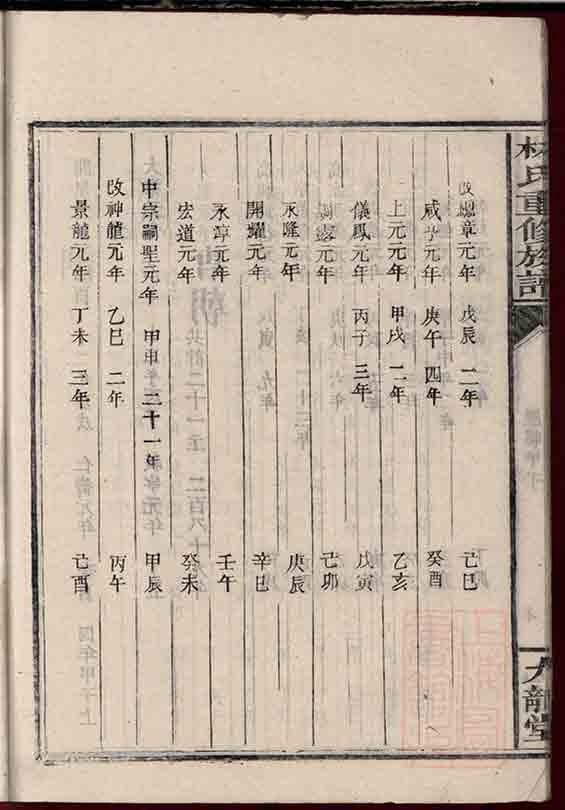 林氏重修族譜
六龍堂
改總章元年 戊辰 二年 己巳
咸亨元年 庚午 四年 癸酉
上元元年 甲戌 二年 乙亥
儀鳳元年 丙子 三年 戊寅
調露元年 己卯
永隆元年 庚辰
開耀元年 辛巳
永淳元年 壬午
宏道元年 癸未
中宗嗣聖元年 甲申 二十一年 甲辰
改神龍元年 乙巳 二年 丙午
景龍元年 丁未 三年 己酉